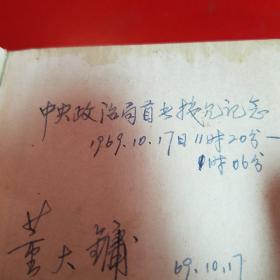 中央政治局首长接见记念
1969.10.17日11时20分—
1时06分
董大镛
69.10.17